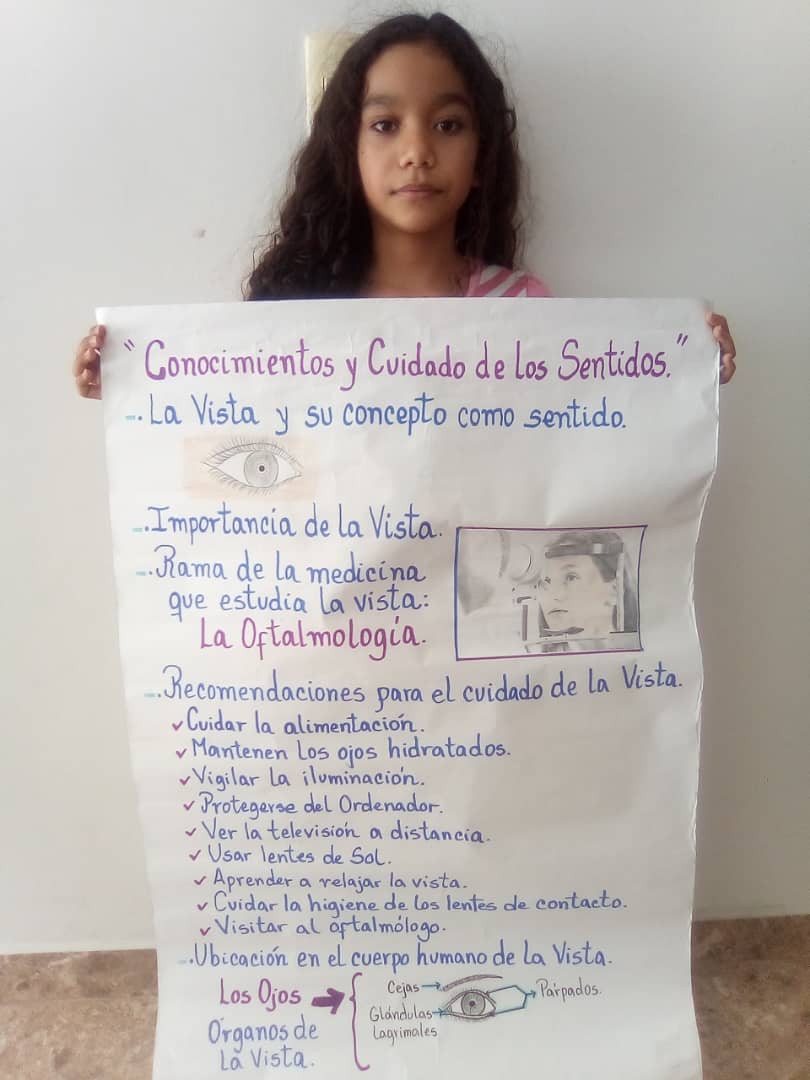 "Conocimientos y Cuidado de los Sentidos."
-. La Vista y su concepto como sentido.
-. Importancia de la Vista.
-. Rama de la medicina
que estudia la vista:
La Oftalmología.
-. Recomendaciones para el cuidado de la Vista.
✓ Cuidar la alimentación.
✓ Mantenen los ojos hidratados.
✓ Vigilar la iluminación.
✓ Protegerse del Ordenador.
✓ Ver la televisión a distancia.
✓ Usar lentes de Sol.
✓ Aprender a relajar la vista.
✓ Cuidar la higiene de los lentes de contacto.
✓ Visitar al oftalmólogo.
-. Ubicación en el cuerpo humano de la Vista.
Los Ojos
Órganos de
la Vista.
Cejas
Glándulas
Lagrimales
Párpados.